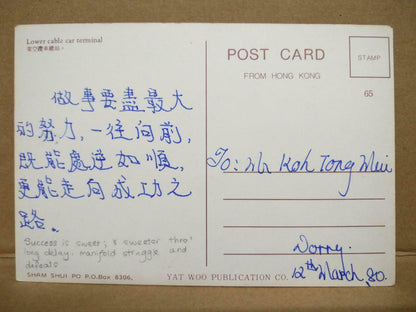 Lower cable car terminal
架空纜車總站。
POST CARD
FROM HONG KONG
STAMP
65
做事要盡最大
的努力，一往向前，
既能處逆如順，
更能走向成功之
路。
To: Mr Koh Tong Mui
Success is sweet; & sweeter thro'
long delay, manifold struggle and
defeats
Dorry.
12th March, 80.
SHAM SHUI PO P.O.Box 8306,
YAT WOO PUBLICATION CO.